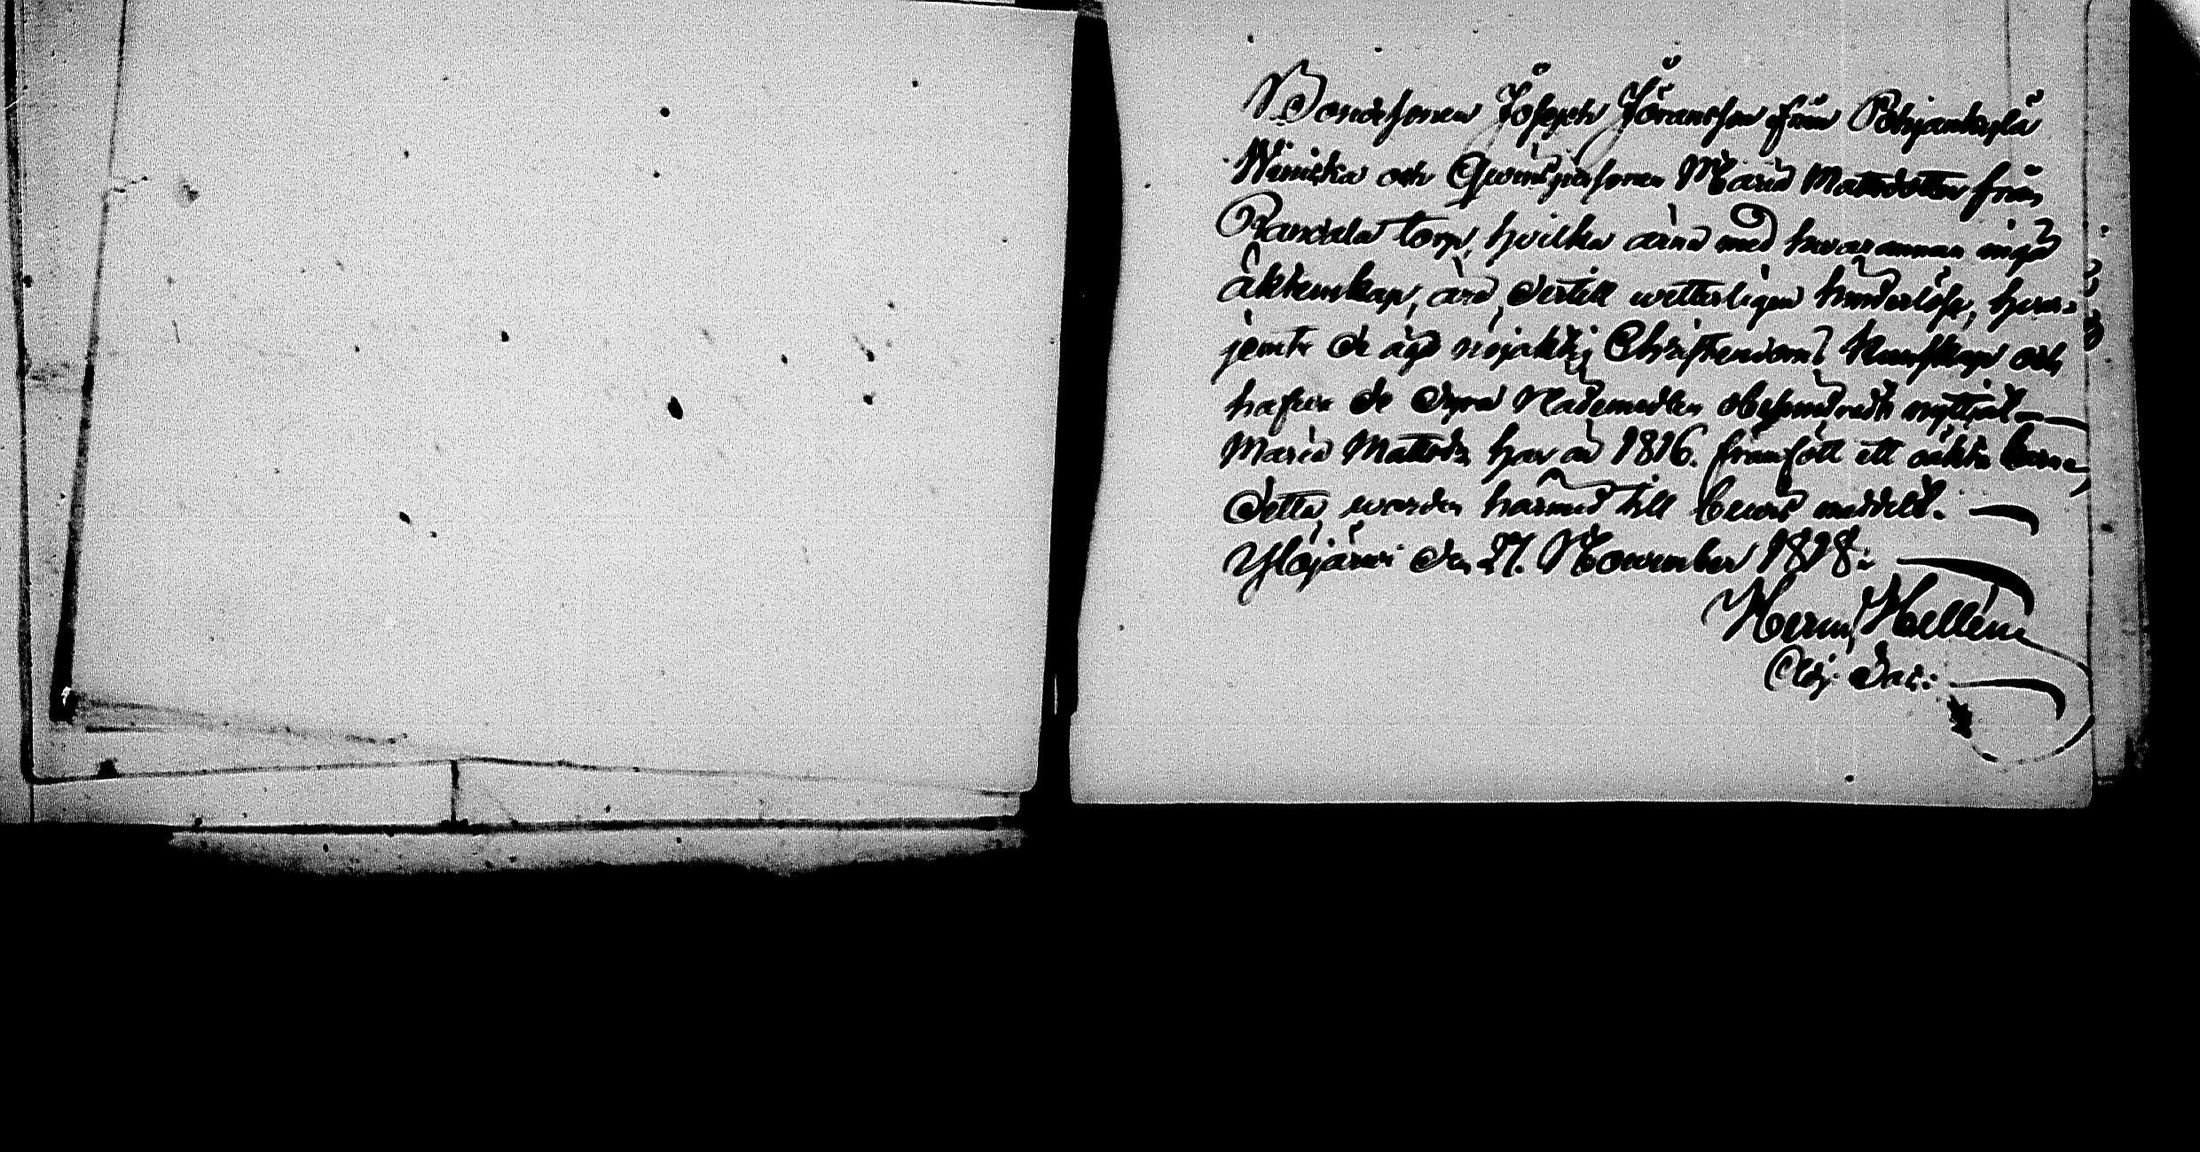 Bondesonen Joseph Göransson från Pohjankylä
Wimicka och Qwinspersonen Maria Mattsdotter från
Randala torp, hvilka ärna med hwarannan ingå
äktenskap, äro dertill wetterligen hinderlöse, hwar-
jemte de äga nöjaktig Christendoms kunskap och
hafwa de dyra Nademedlen obehindradt nyttjat
Maria Mattsdr har år 1816. framfödt ett oäkta barn
Detta warder härmed till bewis meddelt.
Ylöjärwi den 27. November 1818:
Herm Hellén
Adj. Sac: